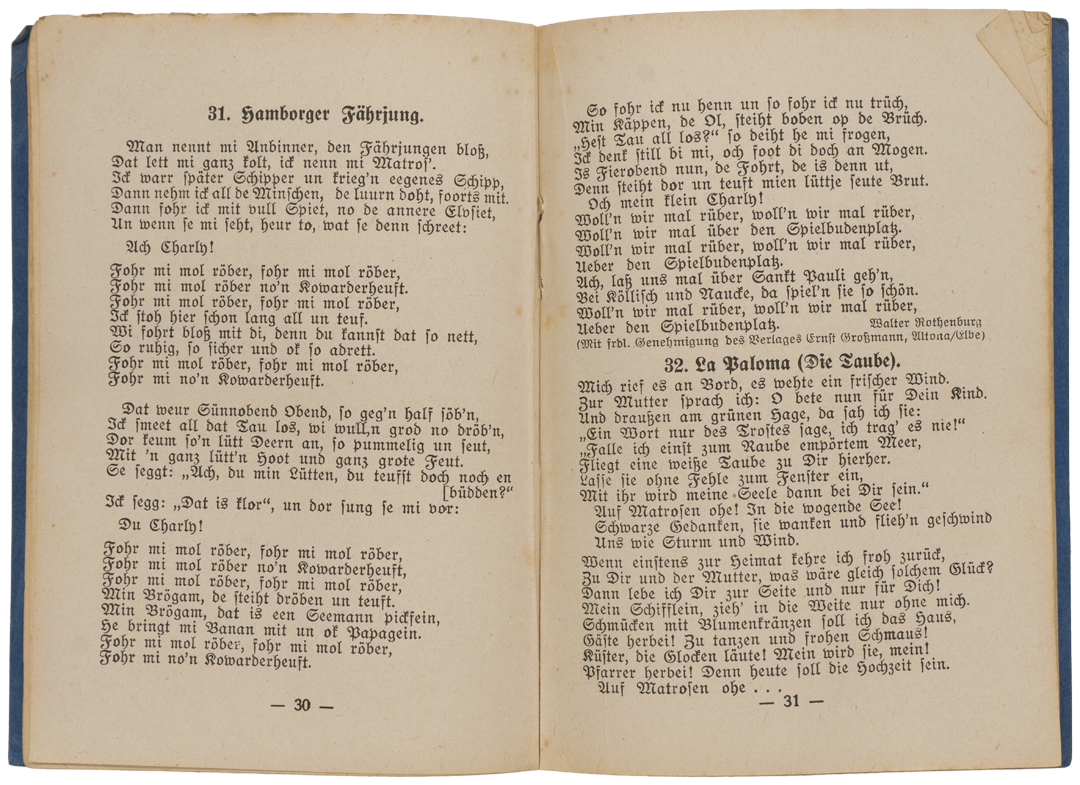 31. Hamborger Fährjung.
Man nennt mi Anbinner, den Fährjungen bloß,
Dat lett mi ganz kolt, ick nenn mi Matros'.
Ick warr später Schipper un krieg'n eegenes Schipp,
Dann nehm ick all de Minschen, de luurn doht, foorts mit.
Dann fohr ick mit vull Spiet, no de annere Elvsiet,
Un wenn se mi seht, heur to, wat se denn schreet:
Ach Charly!
Fohr mi mol röber, fohr mi mol röber,
Fohr mi mol röber no'n Kowarderheuft.
Fohr mi mol röber, fohr mi mol röber,
Ick stoh hier schon lang all un teuf.
Wi fohrt bloß mit di, denn du kannst dat so nett,
So ruhig, so sicher und ok so adrett.
Fohr mi mol röber, fohr mi mol röber,
Fohr mi no'n Kowarderheuft.
Dat weur Sünnobend Obend, so geg'n half söb'n,
Ick smeet all dat Tau los, wi wull,n grod no dröb'n,
Dor keum so'n lütt Deern an, so pummelig un seut,
Mit 'n ganz lütt'n Hoot und ganz grote Feut.
Se seggt: „Ach, du min Lütten, du teufst doch noch en
[büdden?“
Ick segg: „Dat is klor“, un dor sung se mi vor:
Du Charly!
Fohr mi mol röber, fohr mi mol röber,
Fohr mi mol röber no'n Kowarderheuft,
Fohr mi mol röber, fohr mi mol röber,
Min Brögam, de steiht dröben un teuft.
Min Brögam, dat is een Seemann pickfein,
He bringt mi Banan mit un ok Papagein.
Fohr mi mol röber, fohr mi mol röber,
Fohr mi no'n Kowarderheuft.
— 30 —
So fohr ick nu henn un so fohr ick nu trüch,
Min Käppen, de Ol, steiht boben op de Brüch.
„Hest Tau all los?“ so deiht he mi frogen,
Ick denk still bi mi, och foot di doch an Mogen.
Is Fierobend nun, de Fohrt, de is denn ut,
Denn steiht dor un teuft mien lüttje seute Brut.
Och mein klein Charly!
Woll'n wir mal rüber, woll'n wir mal rüber,
Woll'n wir mal über den Spielbudenplatz.
Woll'n wir mal rüber, woll'n wir mal rüber,
Ueber den Spielbudenplatz.
Ach, laß uns mal über Sankt Pauli geh'n,
Bei Köllisch und Naucke, da spiel'n sie so schön.
Woll'n wir mal rüber, woll'n wir mal rüber,
Ueber den Spielbudenplatz. Walter Rothenburg
(Mit frdl. Genehmigung des Verlages Ernst Großmann, Altona/Elbe)
32. La Paloma (Die Taube).
Mich rief es an Bord, es wehte ein frischer Wind.
Zur Mutter sprach ich: O bete nun für Dein Kind.
Und draußen am grünen Hage, da sah ich sie:
„Ein Wort nur des Trostes sage, ich trag' es nie!“
„Falle ich einst zum Raube empörtem Meer,
Fliegt eine weiße Taube zu Dir hierher.
Lasse sie ohne Fehle zum Fenster ein,
Mit ihr wird meine Seele dann bei Dir sein.“
Auf Matrosen ohe! In die wogende See!
Schwarze Gedanken, sie wanken und flieh'n geschwind
Uns wie Sturm und Wind.
Wenn einstens zur Heimat kehre ich froh zurück,
Zu Dir und der Mutter, was wäre gleich solchem Glück?
Dann lebe ich Dir zur Seite und nur für Dich!
Mein Schifflein, zieh' in die Weite nur ohne mich.
Schmücken mit Blumenkränzen soll ich das Haus,
Gäste herbei! Zu tanzen und frohen Schmaus!
Küster, die Glocken läute! Mein wird sie, mein!
Pfarrer herbei! Denn heute soll die Hochzeit sein.
Auf Matrosen ohe . . .
— 31 —